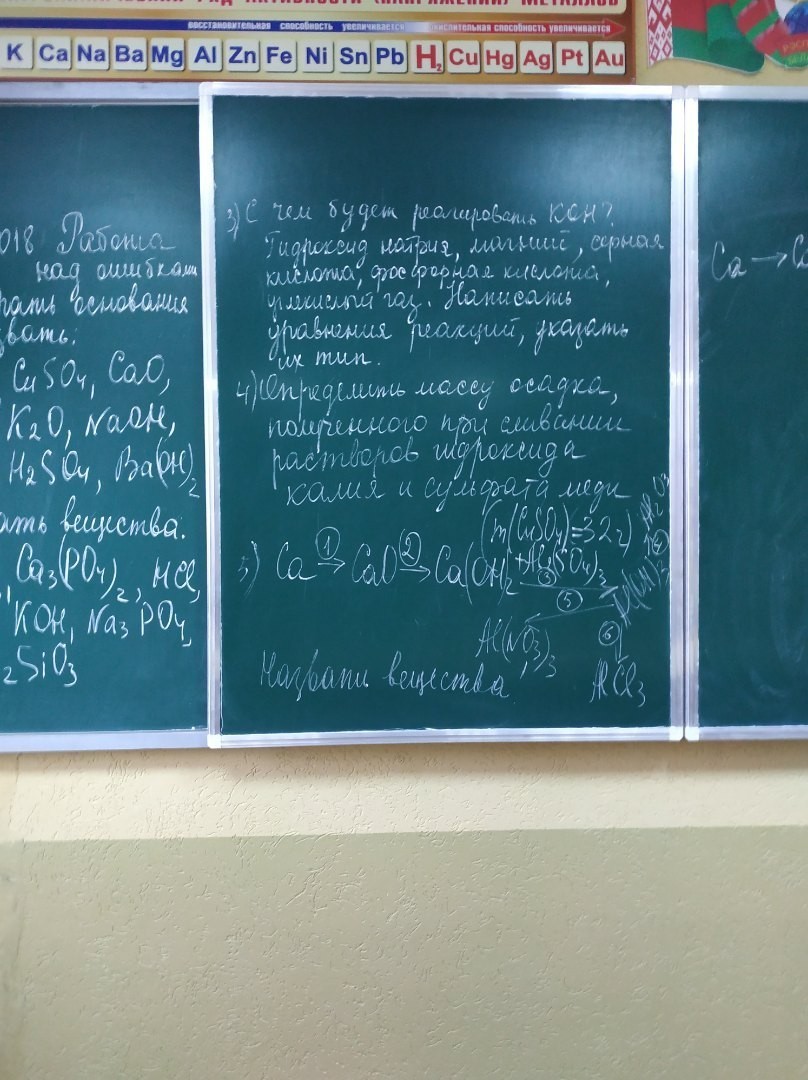 восстановительная способность увеличивается окислительная способность увеличивается
K Ca Na Ba Mg Al Zn Fe Ni Sn Pb H₂ Cu Hg Ag Pt Au
018 Работа
над ошибками
рать основания
звать:
CuSO₄, CaO,
K₂O, NaOH,
H₂SO₄, Ba(OH)₂
ать вещества.
Ca₃(PO₄)₂, HCl,
KOH, Na₃PO₄,
₂SiO₃
3) С чем будет реагировать KOH?
Гидроксид натрия, магний, серная
кислота, фосфорная кислота,
углекислый газ. Написать
уравнения реакций, указать
их тип.
4) Определить массу осадка,
полученного при сливании
растворов гидроксида
калия и сульфата меди
(m(CuSO₄)=32г)
5) Ca →① CaO →② Ca(OH)₂ +Al₂(SO₄)₃ ③
Al(OH)₃
Al₂O₃
⑤
⑥
Al(NO₃)₃
AlCl₃
Назвать вещества
Ca →